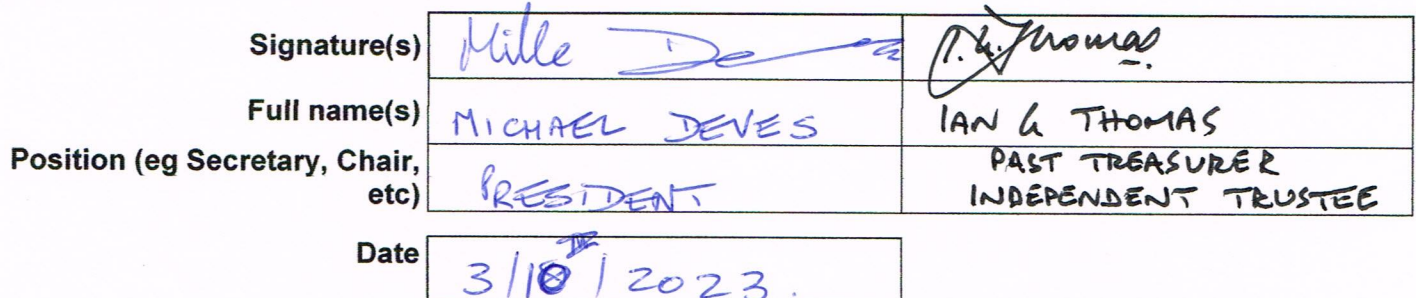 Signature(s) Mille De I.G. Thomas
Full name(s) MICHAEL DEVES IAN G THOMAS
Position (eg Secretary, Chair, PAST TREASURER
etc) PRESIDENT INDEPENDENT TRUSTEE
Date 3/10/2023.